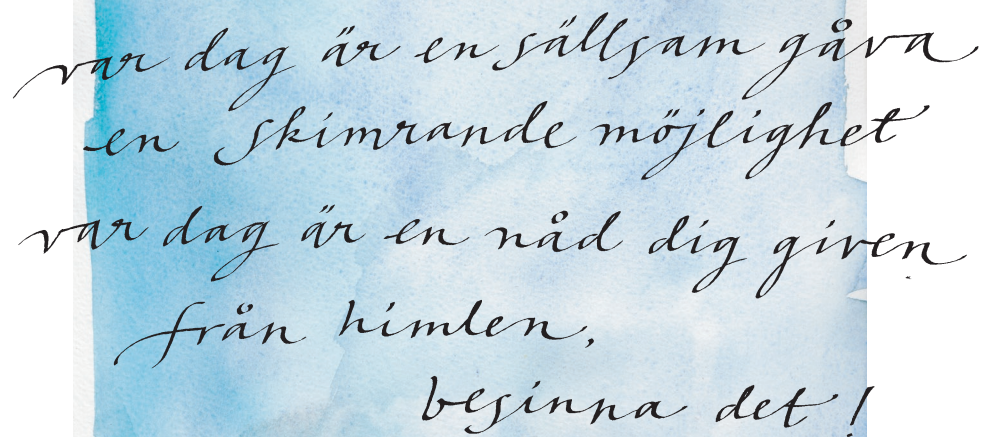 var dag är en sällsam gåva
en skimrande möjlighet
var dag är en nåd dig given
från himlen,
besinna det!